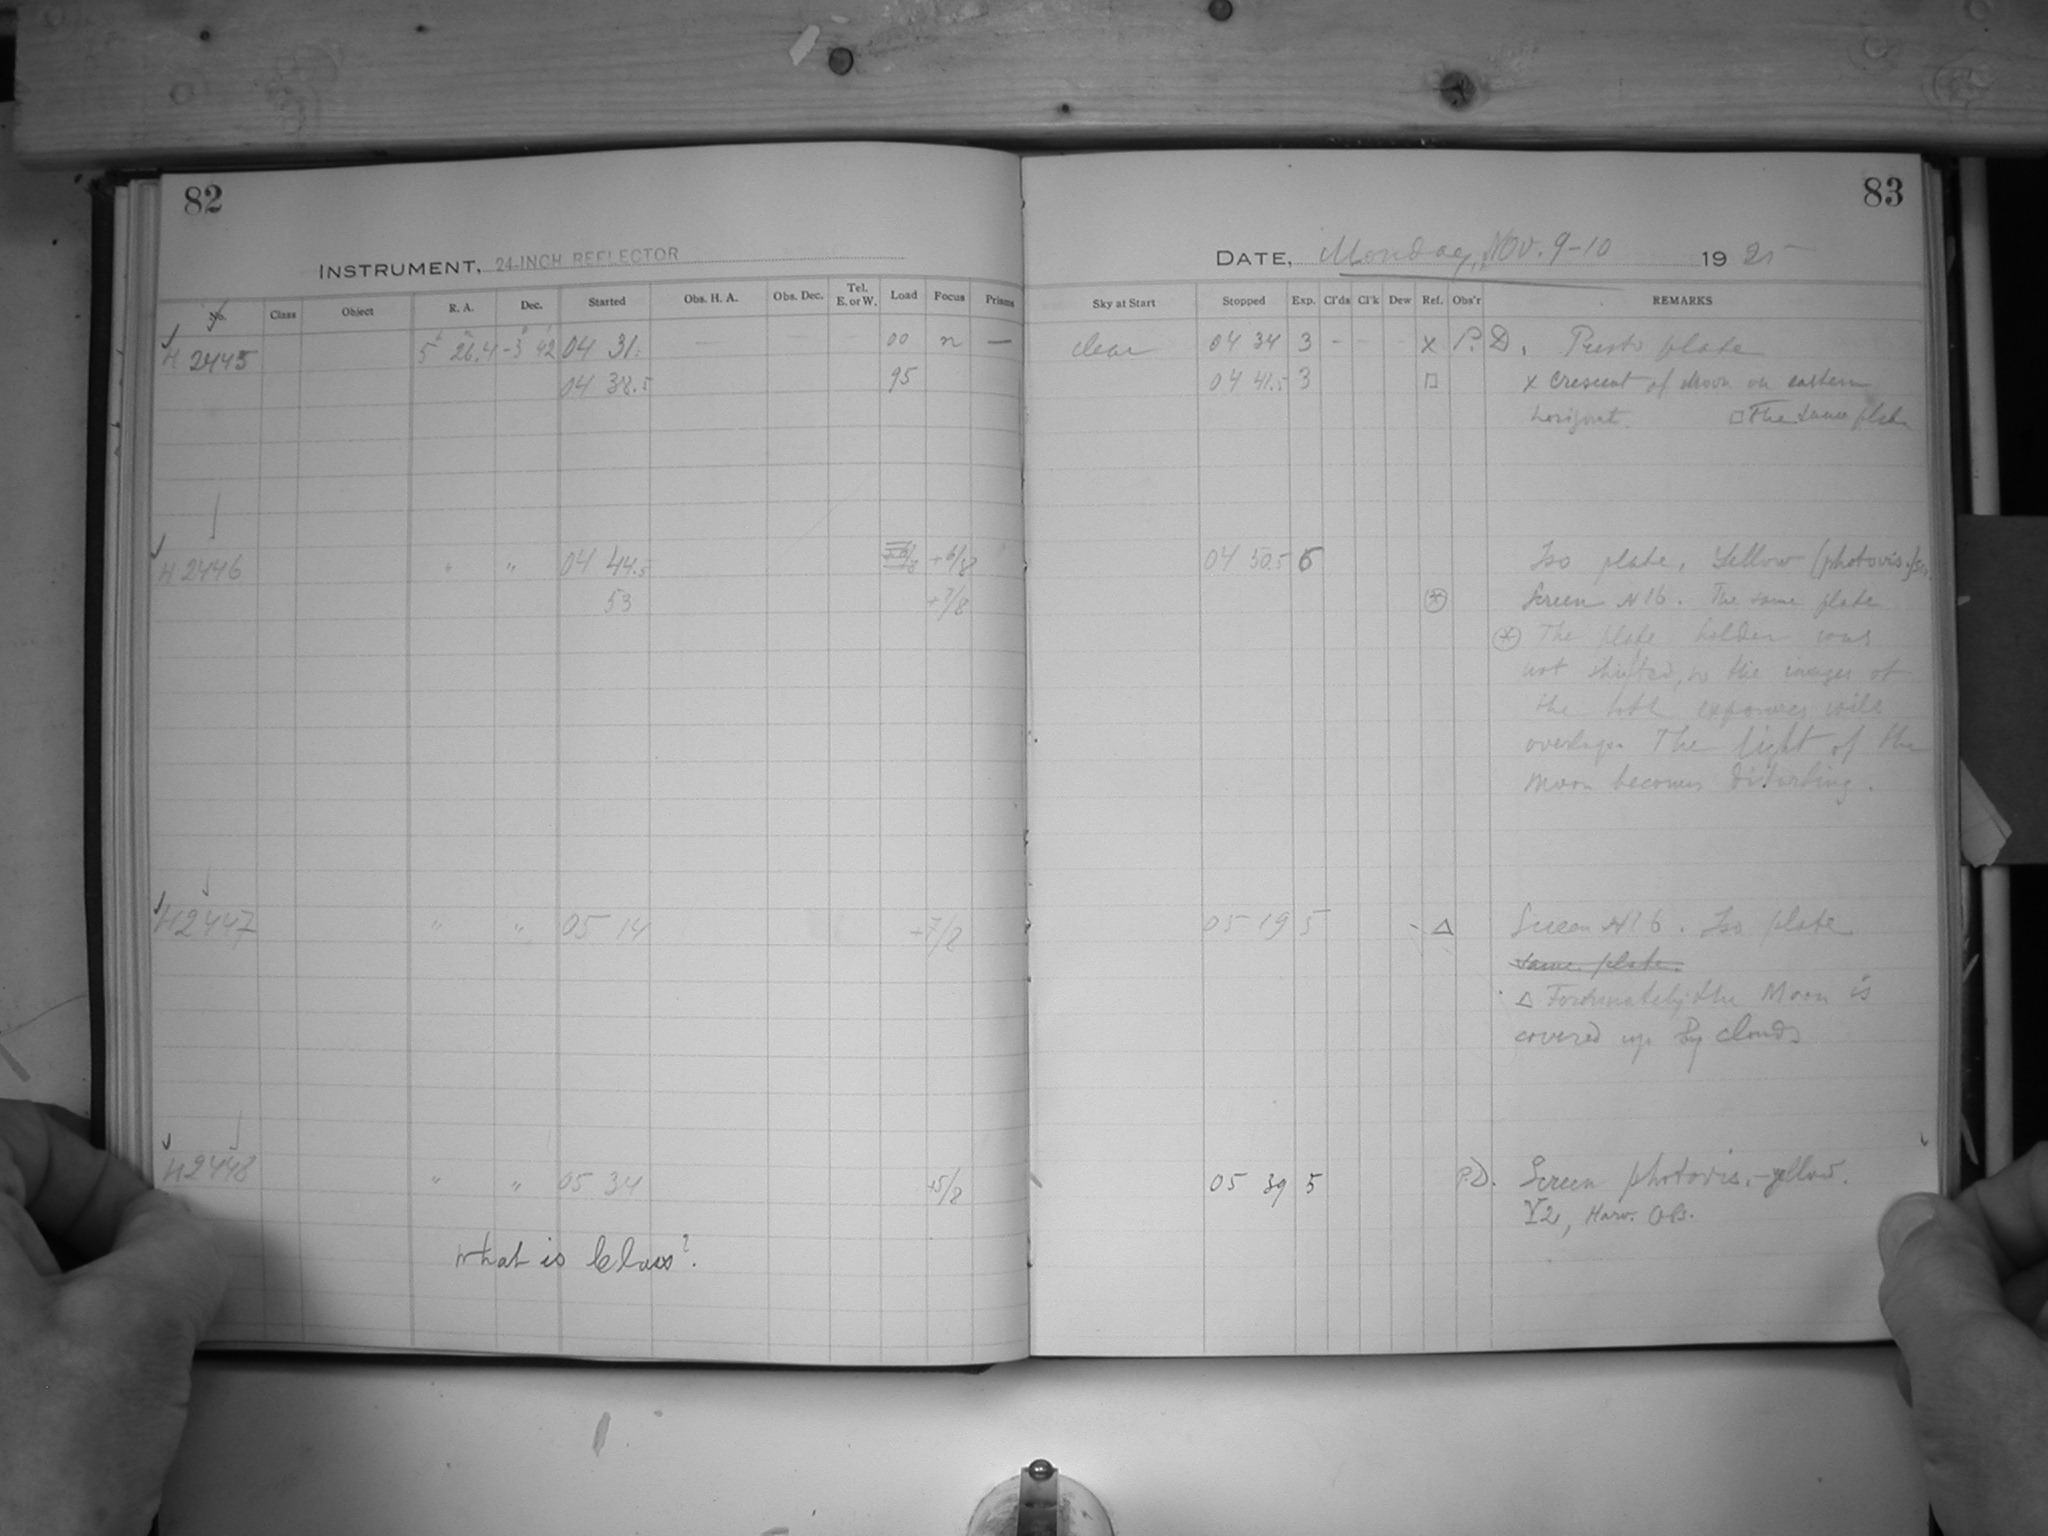 82
INSTRUMENT, 24-INCH REFLECTOR
No. Class Object R. A. Dec. Started Obs. H. A. Obs. Dec. Tel. E. or W. Load Focus Prisms
H 2445 5h 26m.4 -3° 42' 04 31. — — — 00 n —
04 38.5 95
H 2446 " " 04 44.5 +6/8
53 +7/8
H 2447 " " 05 14 +7/8
H 2448 " " 05 34 +5/8
What is Class?
83
DATE, Monday, Nov. 9-10 1925
Sky at Start Stopped Exp. Cl'ds Cl'k Dew Ref. Obs'r REMARKS
clear 04 34 3 - - - x P. D. Presto plate
04 41.5 3 □ x Crescent of Moon on eastern
horizont. □ The same plate
04 50.5 6 Iso plate, Yellow (photovis.)
Screen N 16. The same plate
The plate holder was
not shifted, so the images of
the both exposures will
overlap. The light of the
Moon becomes disturbing.
05 19 5 - △ Screen N 16. Iso plate
same plate.
△ Fortunately the Moon is
covered up by clouds
05 39 5 P.D. Screen photovis.-yellow.
Y2, Harv. Obs.